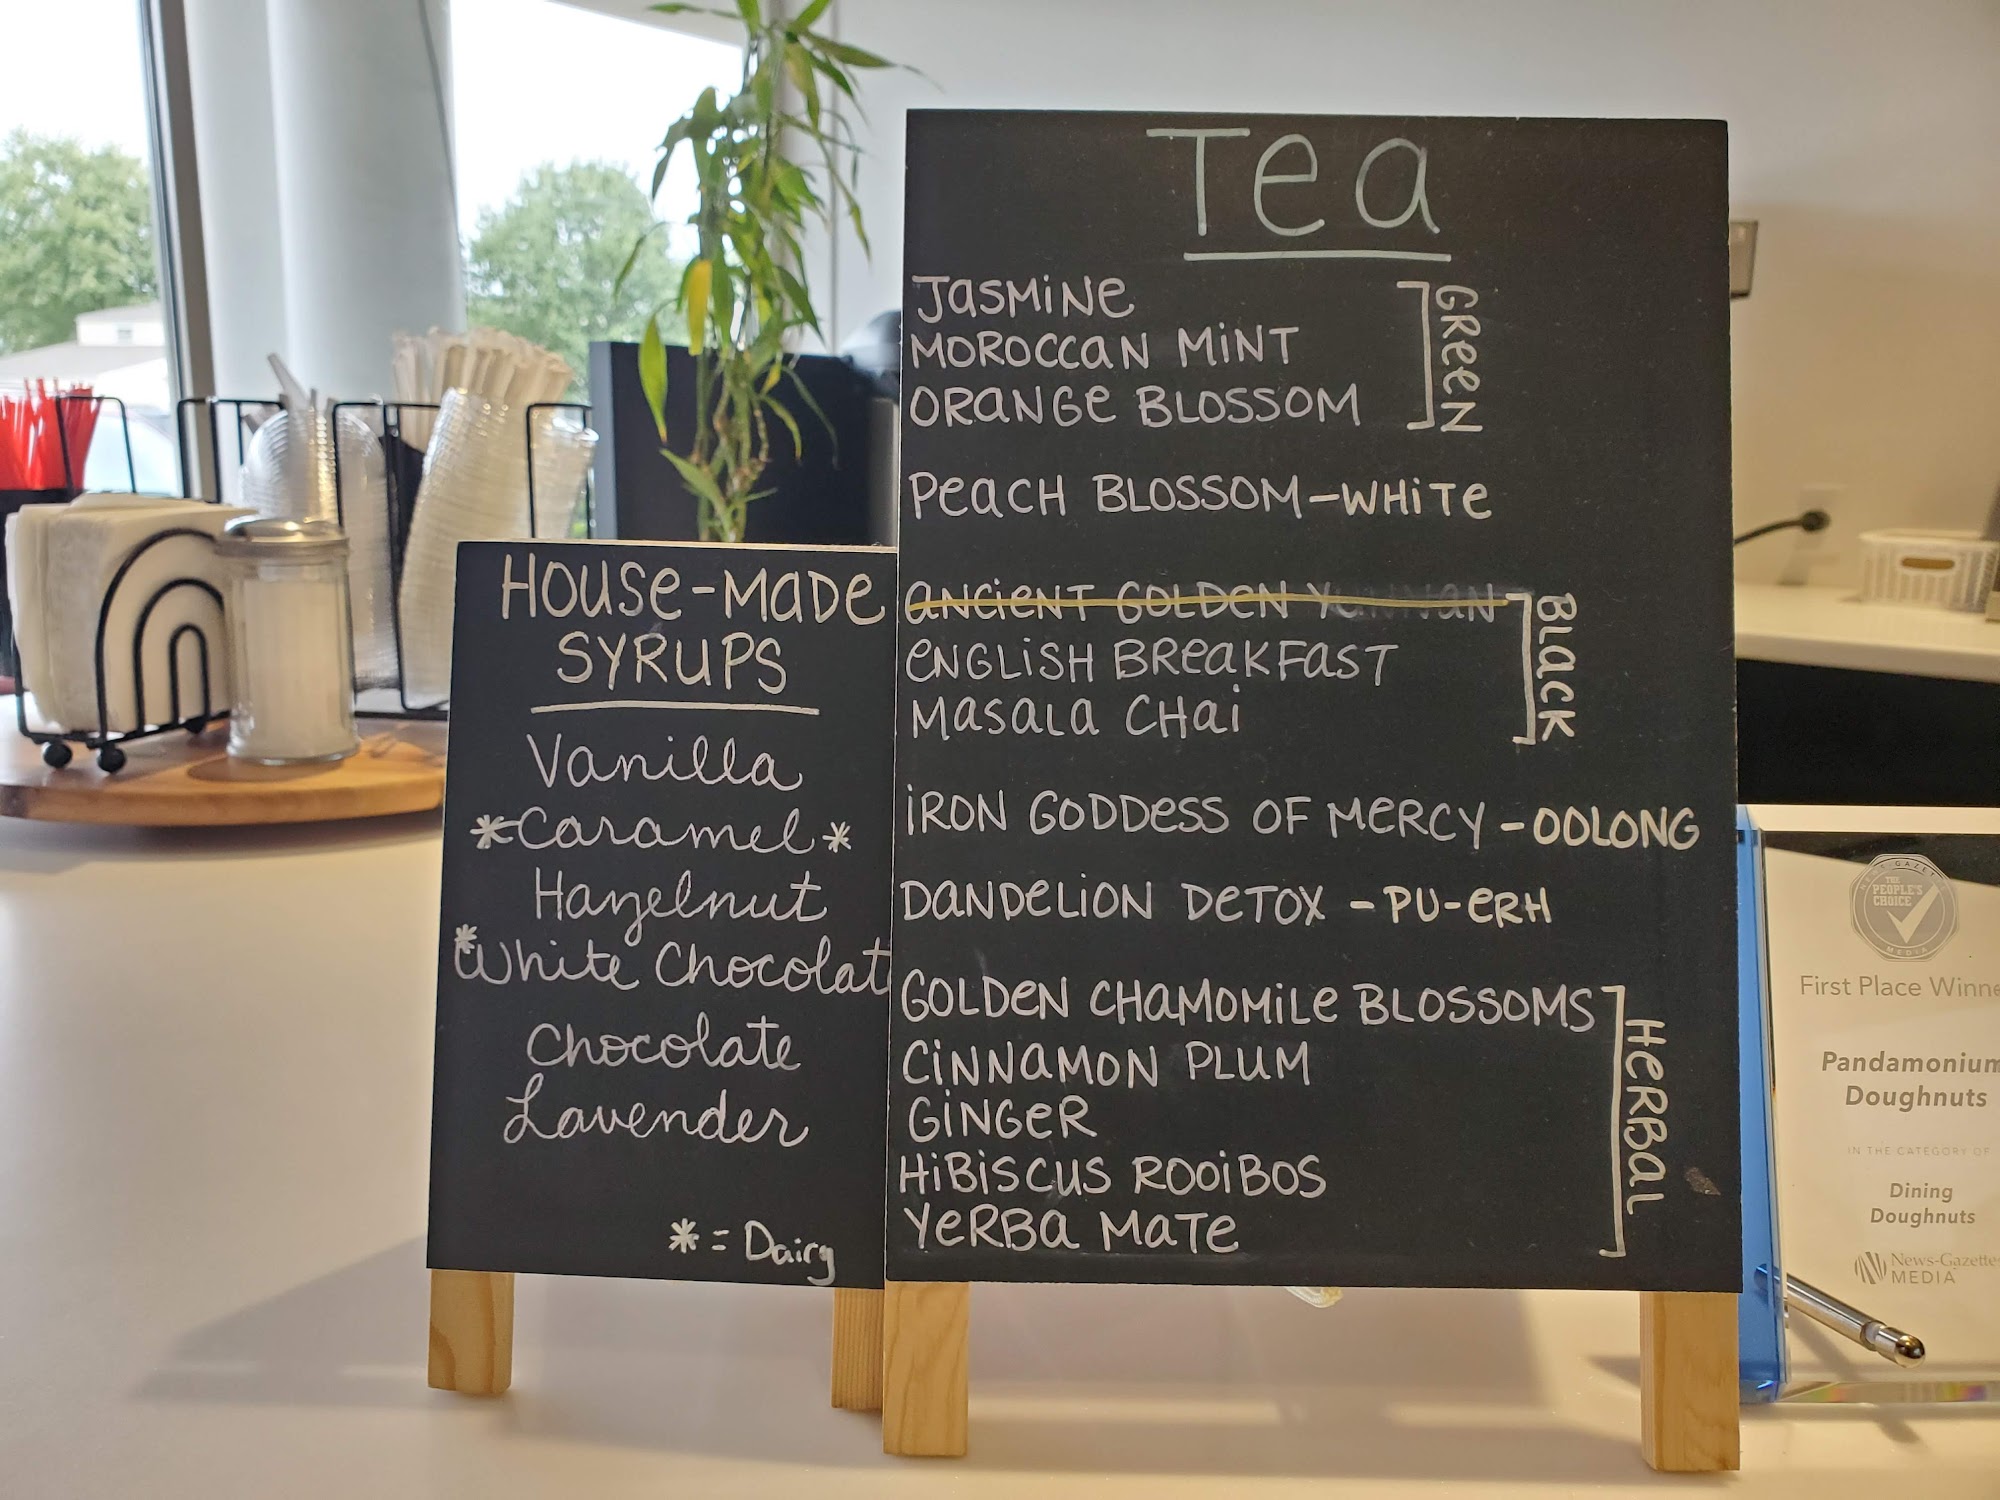 HOUSE-MADE
SYRUPS
Vanilla
*Caramel*
Hazelnut
*White Chocolat
Chocolate
Lavender
* = Dairy
Tea
JASMINE
MOROCCAN MINT
ORANGE BLOSSOM
GREEN
PEACH BLOSSOM-WHITE
ANCIENT GOLDEN YUNNAN
ENGLISH BREAKFAST
MASALA CHAI
BLACK
IRON GODDESS OF MERCY-OOLONG
DANDELION DETOX-PU-ERH
GOLDEN CHAMOMILE BLOSSOMS
CINNAMON PLUM
GINGER
HIBISCUS ROOIBOS
YERBA MATE
HERBAL
NEWS-GAZETTE
THE
PEOPLE'S
CHOICE
MEDIA
First Place Winne
Pandamonium
Doughnuts
IN THE CATEGORY OF
Dining
Doughnuts
News-Gazette
MEDIA